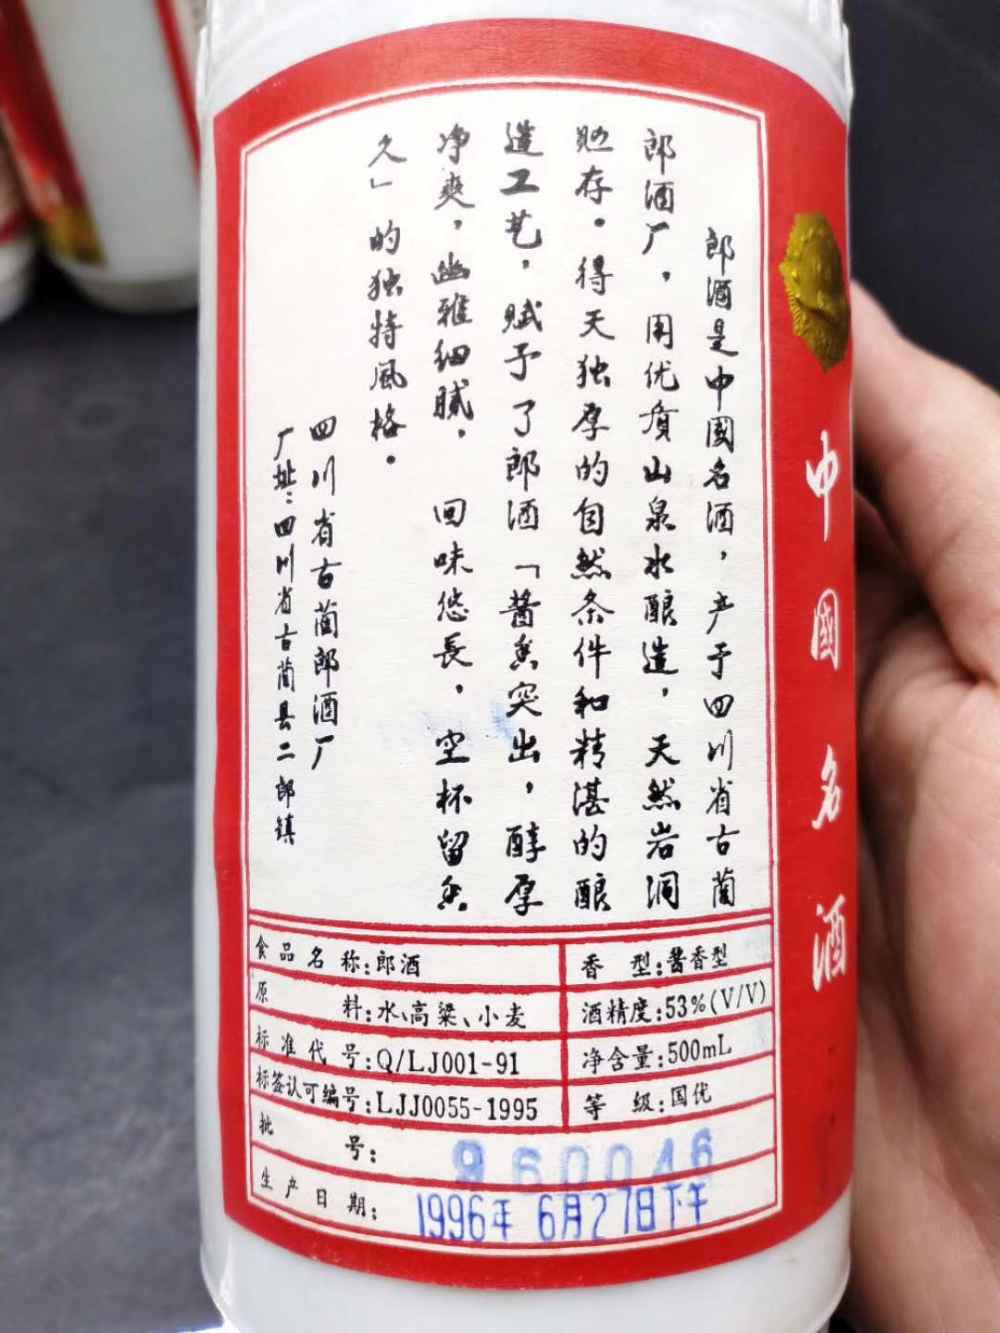 郎酒是中國名酒，产于四川省古蔺
郎酒厂，用优质山泉水酿造，天然岩洞
贮存。得天独厚的自然条件和精湛的酿
造工艺，赋予了郎酒「酱香突出，醇厚
净爽，幽雅细腻，回味悠長，空杯留香
久」的独特風格。
四川省古蔺郎酒厂
厂址：四川省古蔺县二郎镇
中國名酒
食品名称：郎酒
香型：酱香型
原料：水、高粱、小麦
酒精度：53%(V/V)
标准代号：Q/LJ001-91
净含量：500mL
标签认可编号：LJJ0055-1995
等级：国优
批号：960046
生产日期：1996年6月27日下午